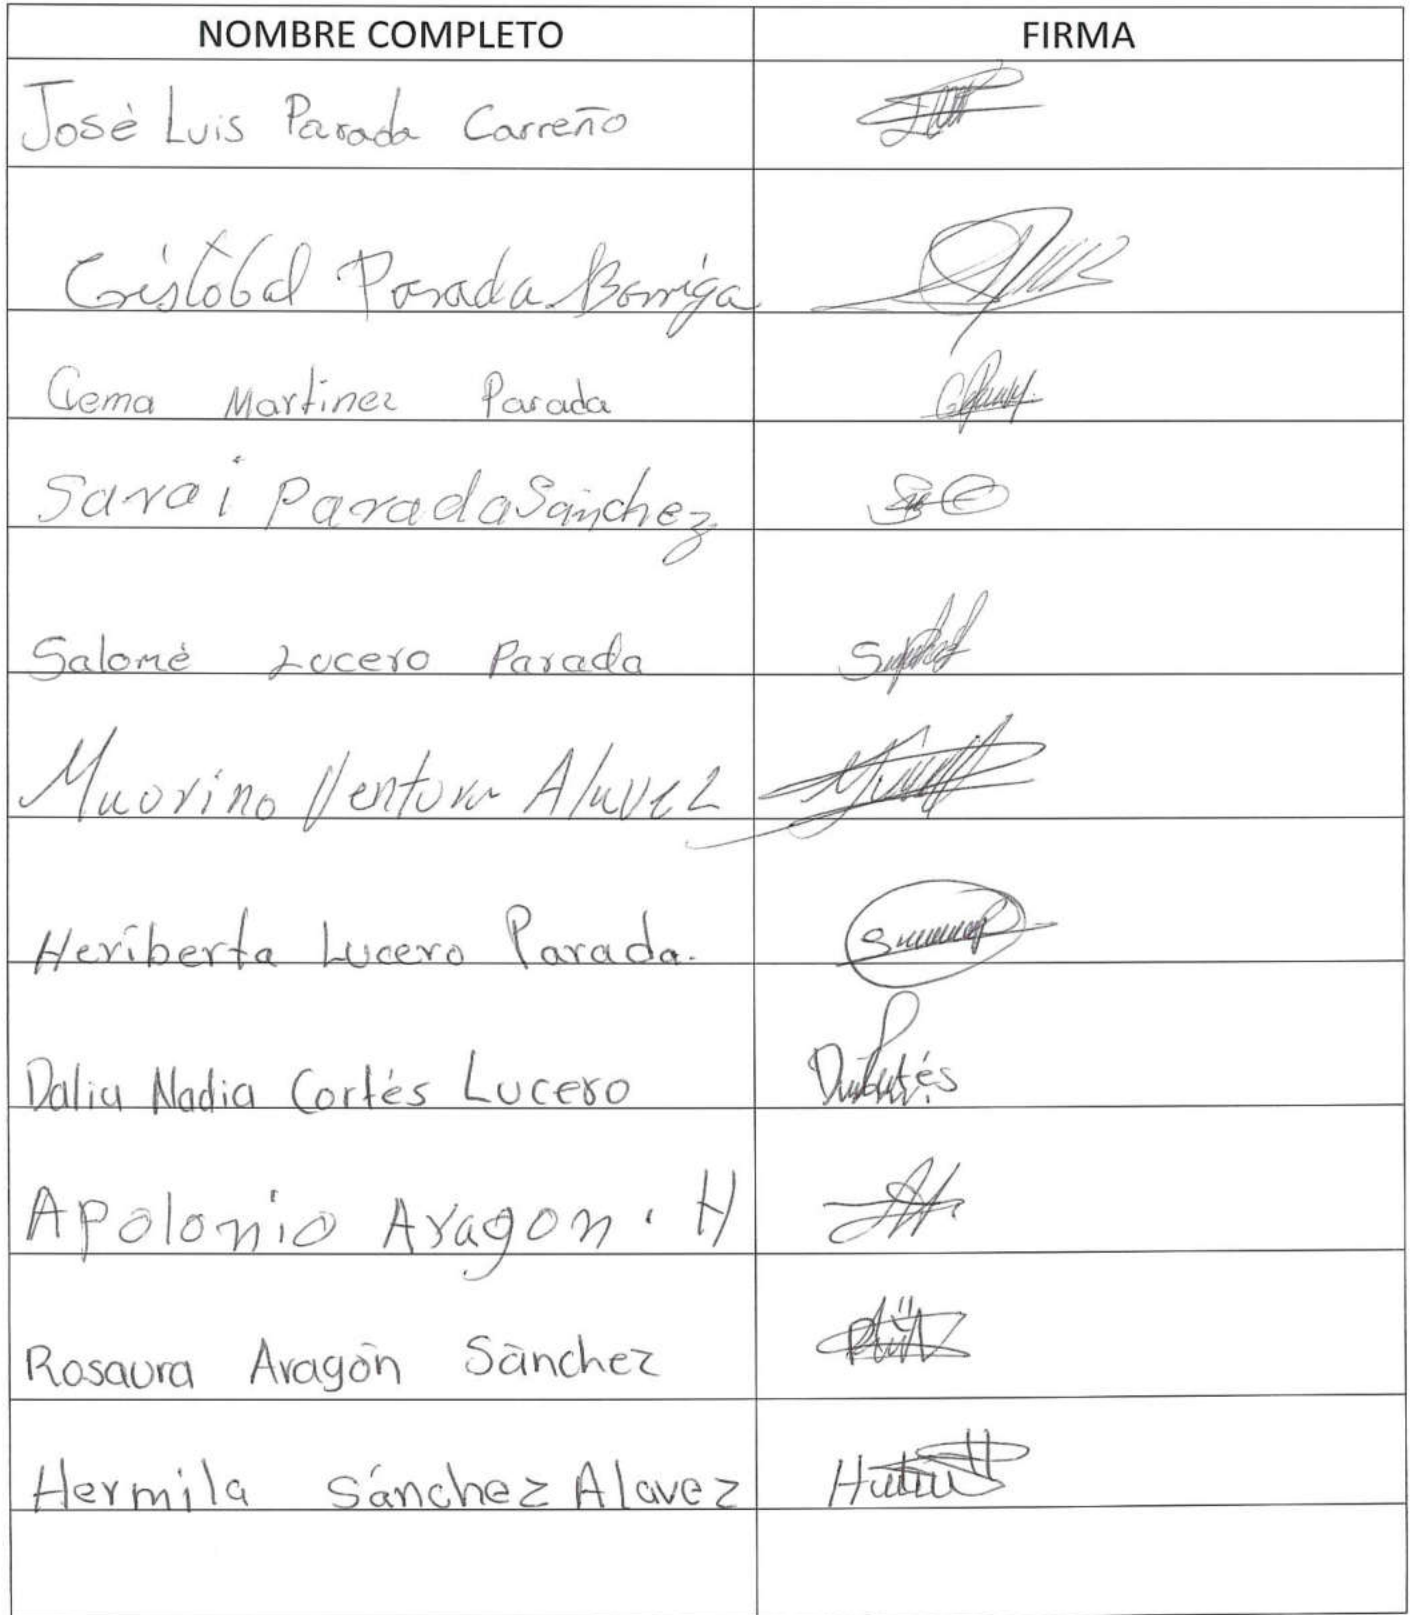 NOMBRE COMPLETO FIRMA
José Luis Parada Carreño
Cristobal Parada Barriga
Gema Martinez Parada
Sarai Parada Sánchez
Salomé Lucero Parada
Muorino Ventura Alavez
Heriberta Lucero Parada.
Dalia Nadia Cortés Lucero
Apolonio Aragon. H
Rosaura Aragón Sánchez
Hermila Sánchez Alavez